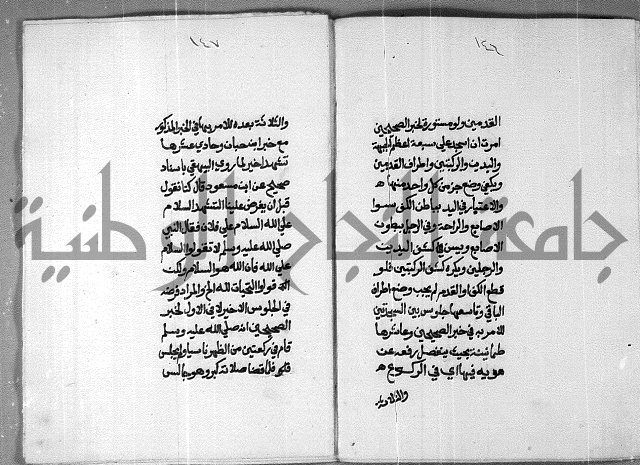 ١٤٦
القدمين ولو مستورة لخبر الصحيحين
امرت ان اسجد على سبعة اعظم الجبهة
واليدين والركبتين واطراف القدمين
ويكفي وضع جزء من كل واحد منها ه
والاعتبار في اليد بباطن الكف سوا
الاصابع والراحة وفي الرجل ببطون
الاصابع ويسن كشف اليدين
والرجلين ويكره كشف الركبتين فلو
قطع الكف او القدم لم يجب وضع اطراف
الباقي وتاسعها جلوس بين السجدتين
للامر به في خبر الصحيحين وعاشرها
طمانينة بحيث ينفصل رفعه عن
هويه فيها اي في الركوع ه
والثلاثة
١٤٧
والثلاثة بعده للامر بها في الخبر المذكور
مع خبر ابن حبان وحادي عشرها
تشهد اخير لما روى البيهقي باسناد
صحيح عن ابن مسعود قال كنا نقول
قبل ان يفرض علينا التشهد السلام
على الله السلام على فلان فقال النبي
صلى الله عليه وسلم لا تقولوا السلام
على الله فان الله هو السلام ولكن
قولوا التحيات لله الخ والمراد فرضه
في الجلوس الاخير لا في الاول لخبر
الصحيحين انه صلى الله عليه وسلم
قام في ركعتين من الظهر ناسيا ولم يجلس
فلما قضا صلاته كبر وهو جالس
جامعة النجاح الوطنية